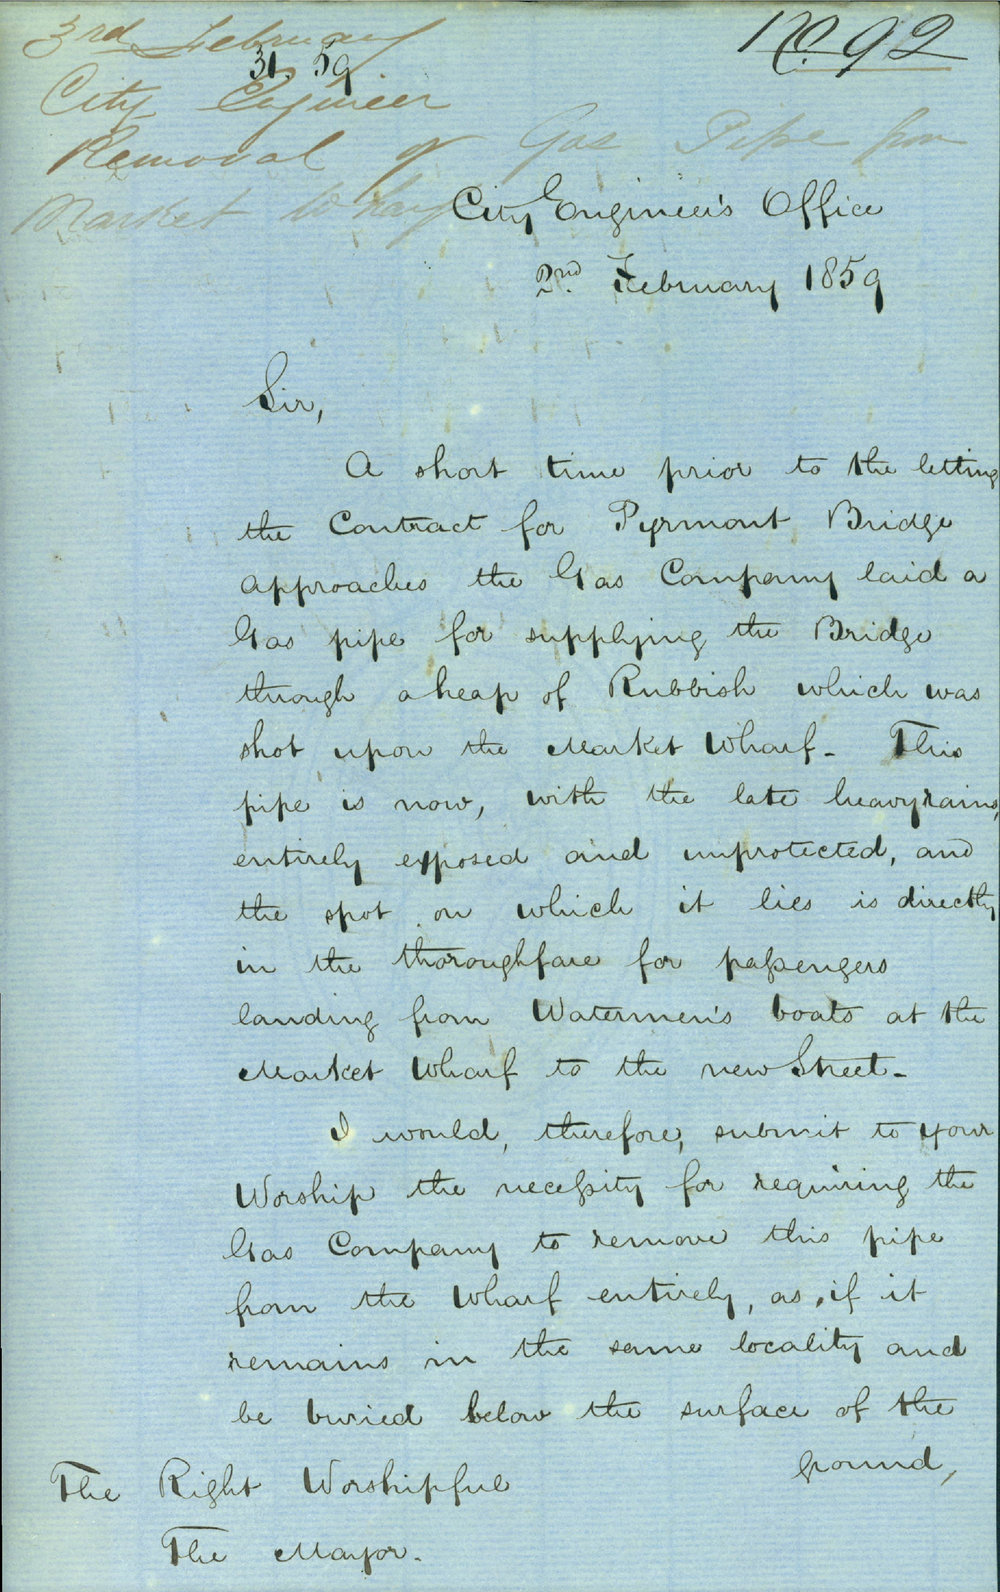 3rd February
31. 59
No. 92
City Engineer
Removal of Gas Pipe from
Market Wharf
City Engineer's Office
2nd. February 1859
Sir,
A short time prior to the letting
the Contract for Pyrmont Bridge
approaches the Gas Company laid a
Gas pipe for supplying the Bridge
through a heap of Rubbish which was
shot upon the Market Wharf - This
pipe is now, with the late heavy rains,
entirely exposed and unprotected, and
the spot on which it lies is directly
in the thoroughfare for paſsengers
landing from Watermen's boats at the
Market Wharf to the new Street -
I would, therefore, submit to your
Worship the neceſsity for requiring the
Gas Company to remove this pipe
from the Wharf entirely, as, if it
remains in the same locality and
be buried below the surface of the
ground,
The Right Worshipful
The Mayor.